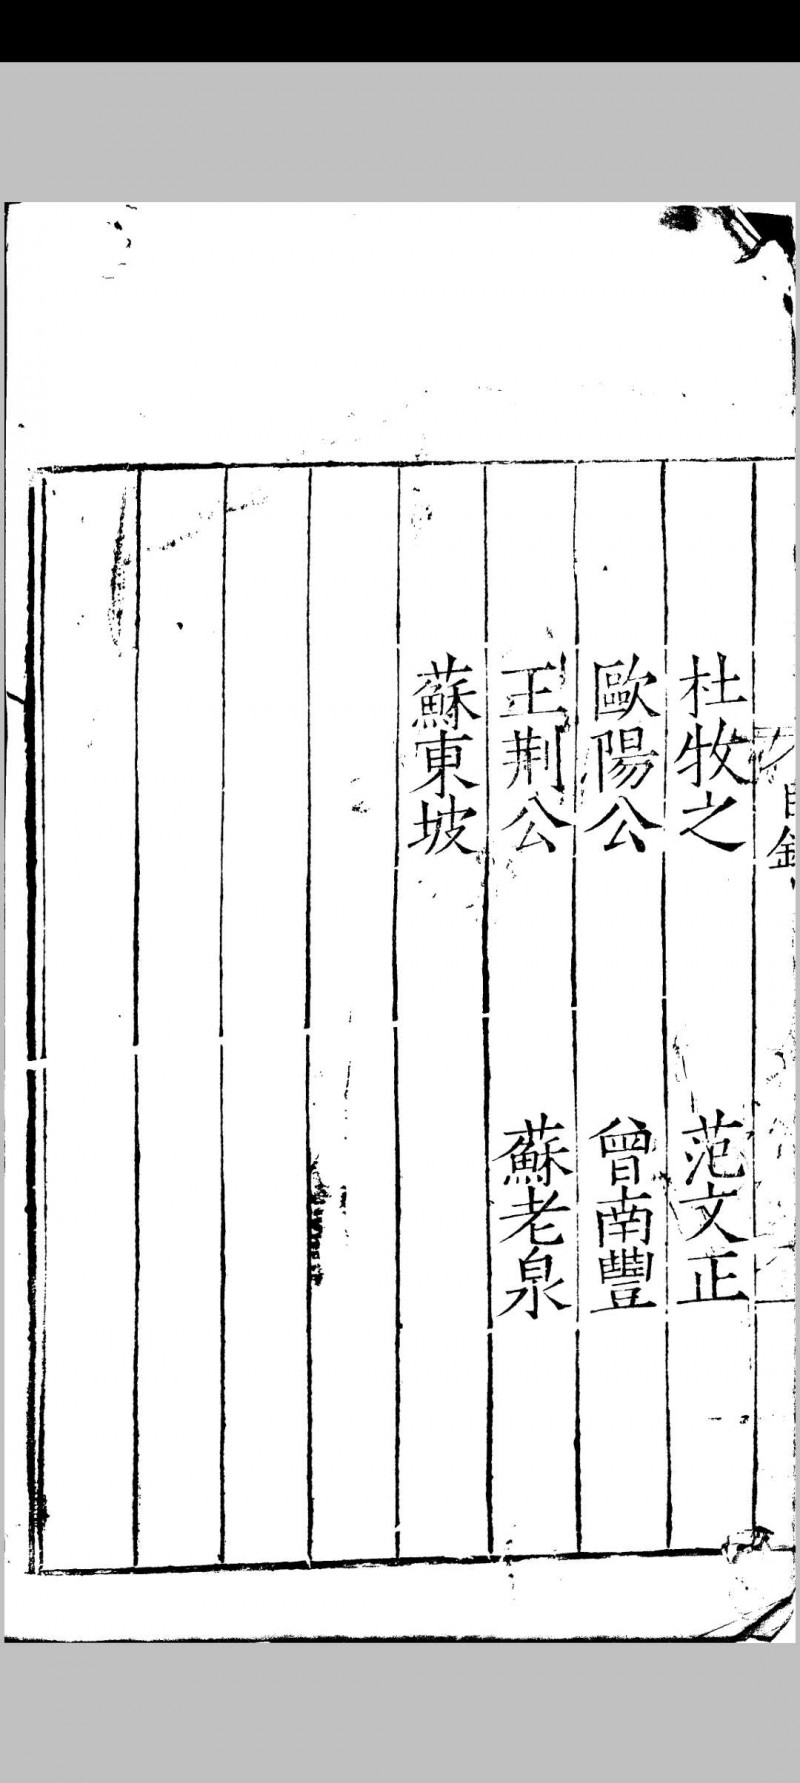 目錄
杜牧之 范文正
歐陽公 曾南豐
王荆公 蘇老泉
蘇東坡